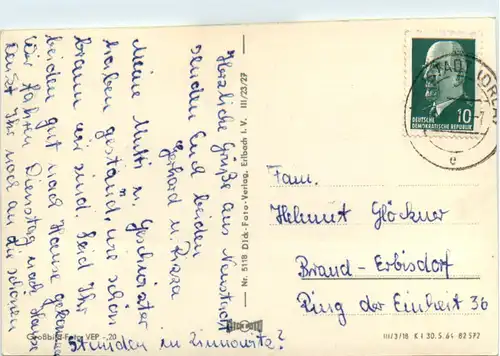 Herzliche Grüße aus Neustadt
senden Euch beiden
Gerhard u.
Meine Mutti u. Geschwister
haben gestaunt, wie schön
braun wir sind. Seid Ihr
beiden gut nach Hause gekommen
Wir fuhren Dienstag nach Hause
Denkt Ihr noch an die schönen
Stunden in Zinnowitz?
Großbild-Foto VEP -,20
Nr. 5118 Dick-Foto-Verlag, Erlbach i. V. III/23/27
DICK FOTO
STADT (ORLA)
DEUTSCHE
DEMOKRATISCHE REPUBLIK
10
e
Fam.
Helmut Glöckner
Brand-Erbisdorf
Ring der Einheit 36
III/3/18 K 1 30. 5. 64 82 597